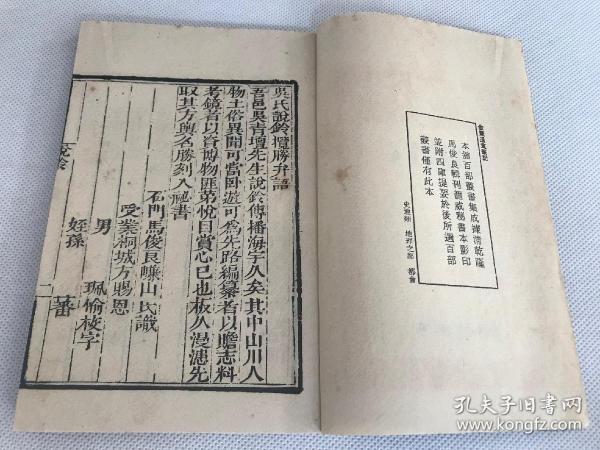 金鰲退食筆記
本館百部叢書集成據清乾隆
馬俊良輯刊龍威秘書本影印
並附四庫提要於後所選百部
叢書僅有此本
地理之屬 都會
吳氏說鈴攬勝弁語
吾邑吳青壇先生說鈴傳播海宇久矣其中山川人
物土俗異聞可當臥遊可為先路編纂者以贍志料
考鏡者以資博物匪第悅目賞心已也板久漫漶先
取其方輿名勝刻入秘書
石門馬俊良嵰山氏識
受業桐城方賜恩
男 珮愉校字
姪孫 蕃
說鈴
一
孔夫子旧书网